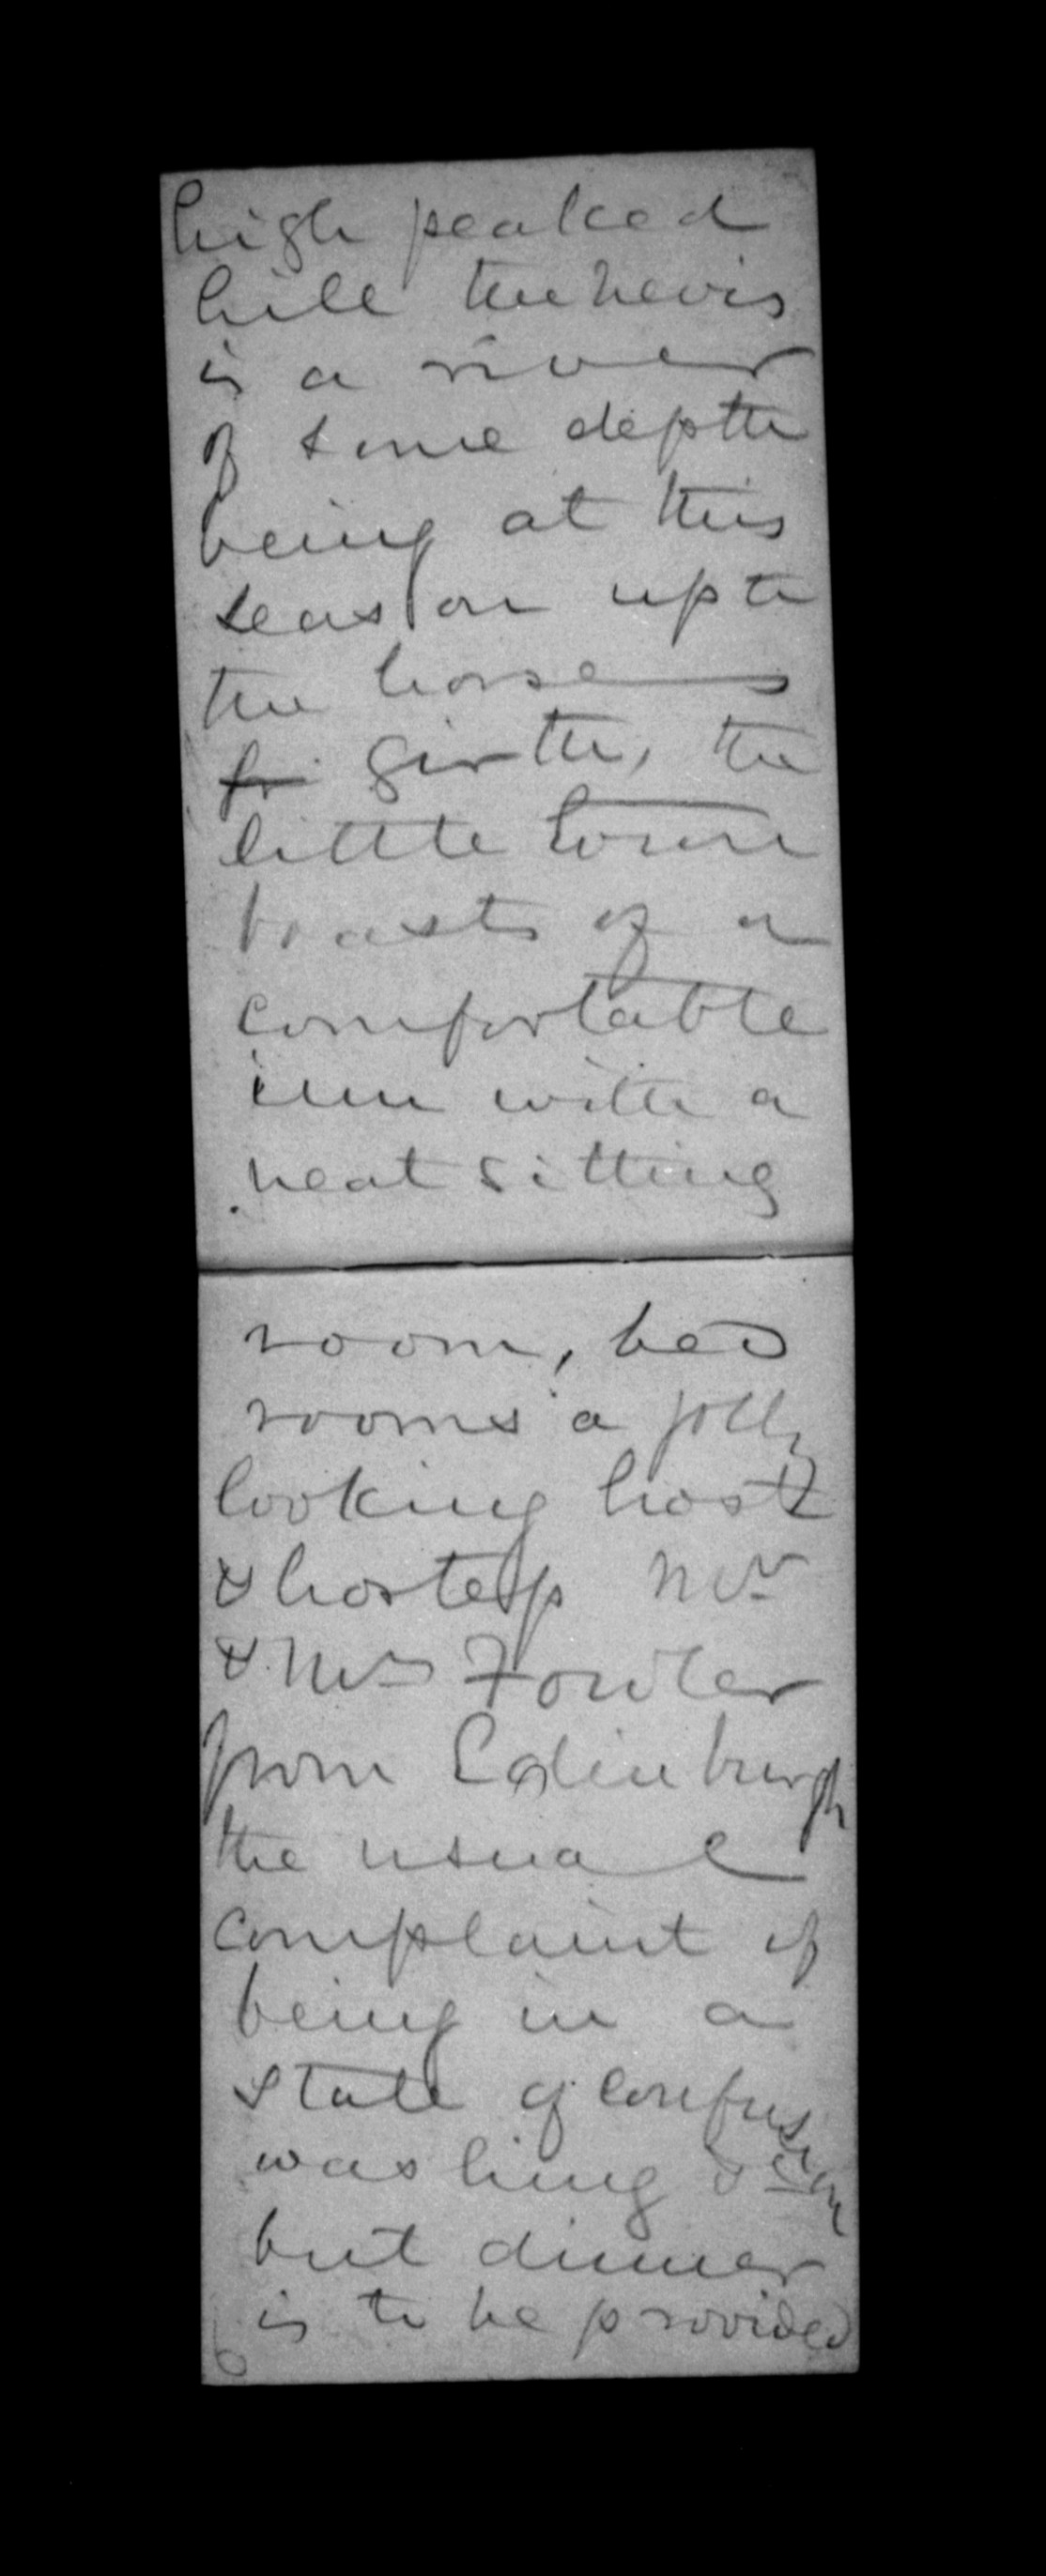 high peaked
hill the nevis
is a river
of some depth
being at this
season up to
the horses
girth, the
little town
boasts of a
comfortable
inn with a
neat sitting
room, bed
rooms a jolly
looking host
& hostess Mr
& Mrs Fowler
from Edinburgh
the usual
complaint of
being in a
state of confusion
washing &
but dinner
is to be provided